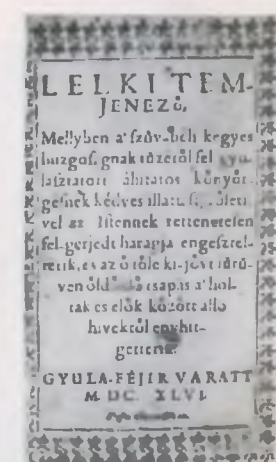 LELKI TEM-
JENEZŐ,
Mellyben a' szűvbéli kegyes
buzgoságnak tűzétől fel
áhitatos könyör-
gesnek kedves illatu
vel az Istennek rettenetesen
fel-gerjedt haragja engesztel-
tetik, es az ő töle ki-jövt
csapás a' hol-
tak es elők között allo
hivektől enyhit-
GYULA-FÉJIR VARATT
M. DC. XLVI.